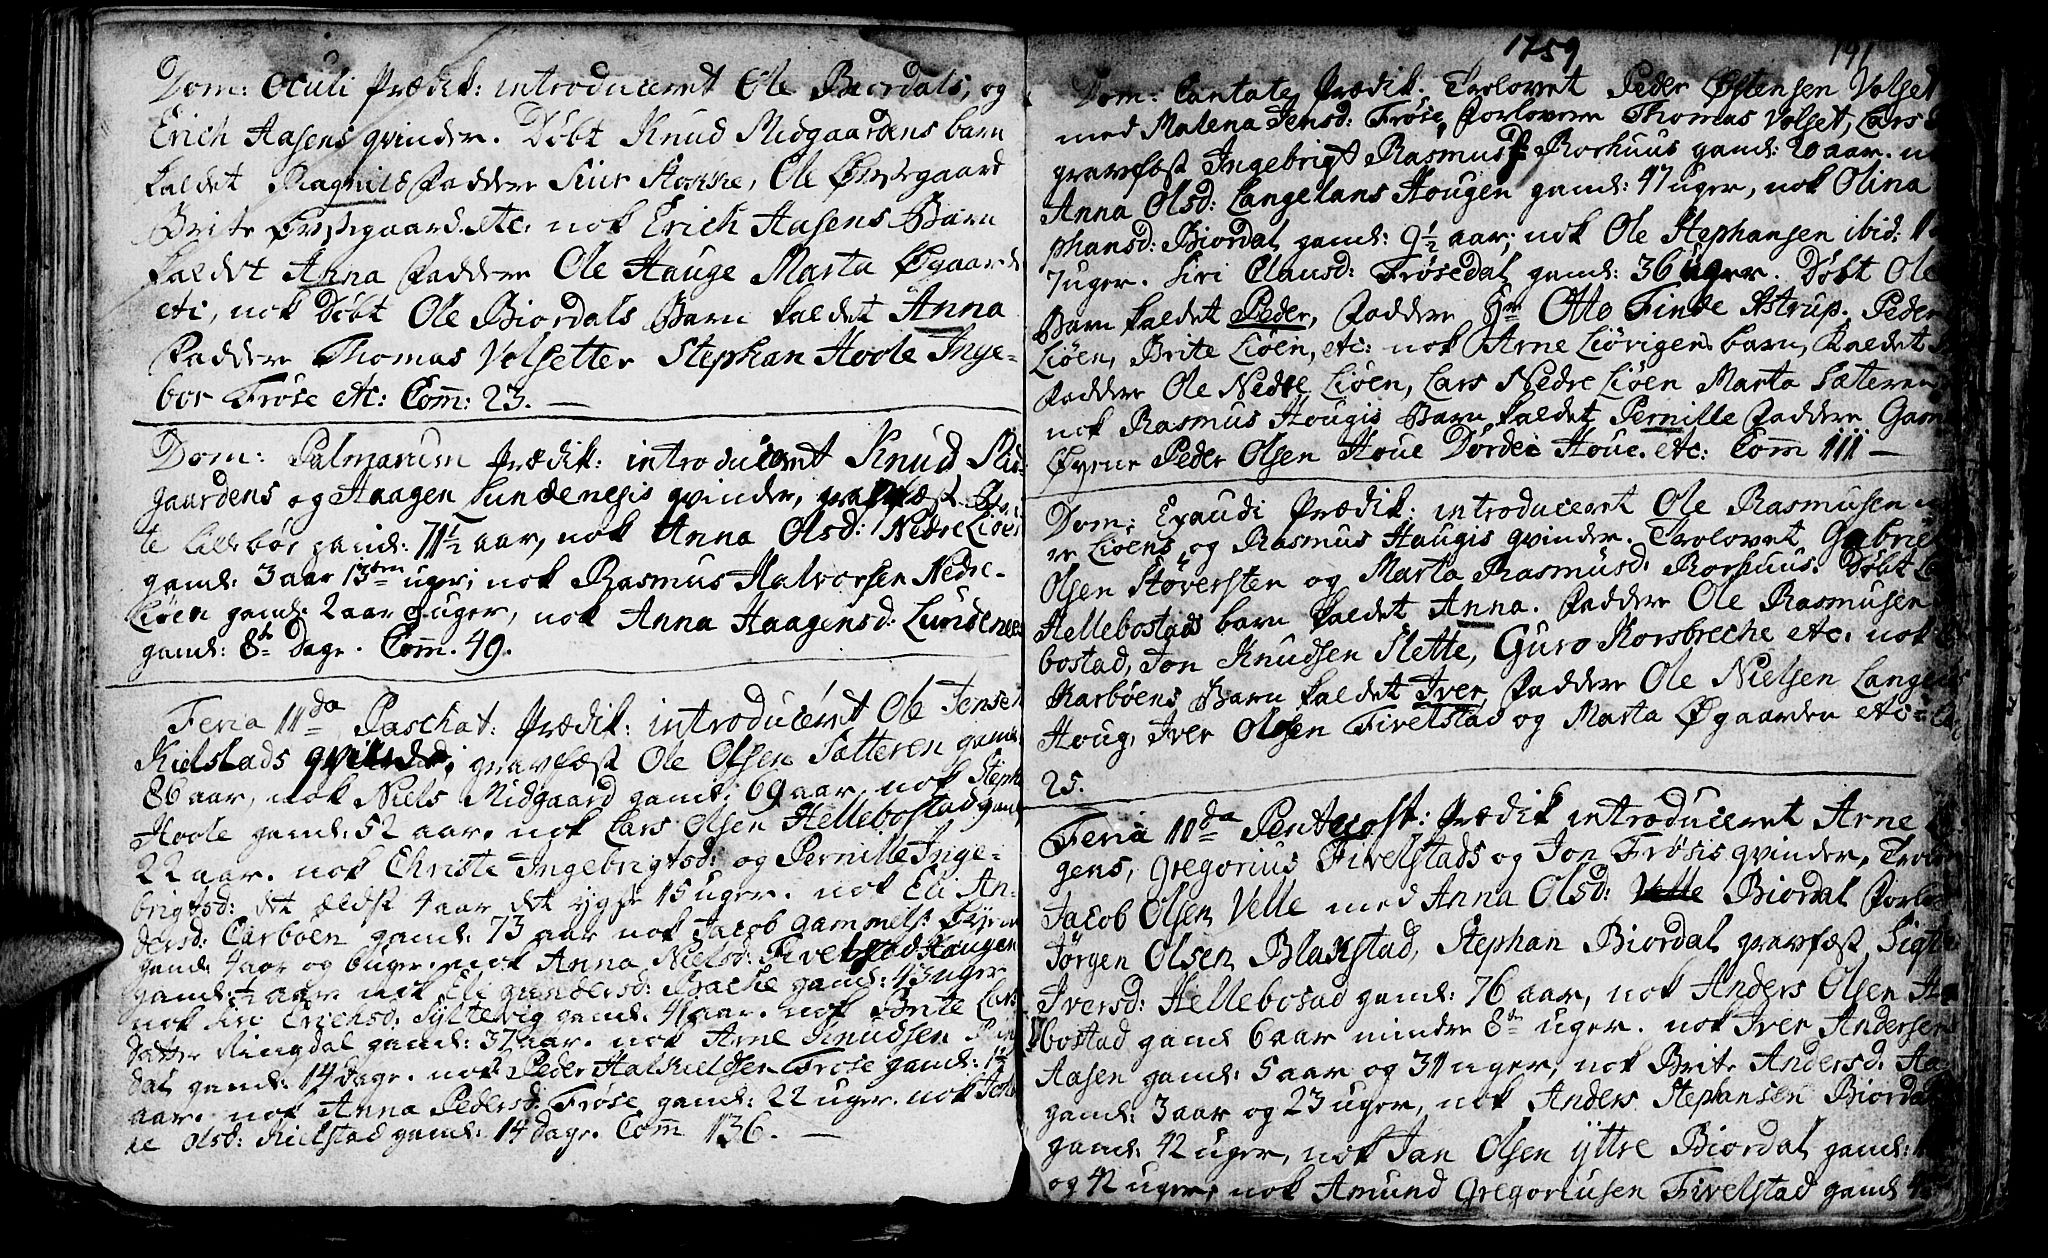 Dom: Oculi Prædik: introduceret Ole Biordals, og
Erich Aasens qvinder. Døbt Knud Midgaardens barn
kaldet Ragnild Faddere Siur Stokke, Ole
Brite etc: nok Erich Aasens Barn
kaldet Anna Faddere Ole Hauge Marta Øgaard
etc, nok Døbt Ole Biordals Barn kaldet Anna
Faddere Thomas Volsetter Stephan Hoole Inge-
bor Frøse etc: Com̄: 23. —
Dom: Palmarum Prædik: introduceret Knud Mid-
gaardens og Haagen Lundenesis qvinder, gravfæst
te Lillebør gamel: 71½ aar, nok Anna Olsd: Nedre Liøen
gamel: 3 aar 13ten uger; nok Rasmus Halvorsen Nedre-
Liøen gamel: 2 aar 9 uger, nok Anna Haagensd: Lundenes
gamel: 8te Dage. Com̄. 49.
Feria IIda Paschat: Prædik: introduceret Ole Jensen
Kielstads qvinde, gravfæst Ole Olsen Sætteren gamel
86 aar, nok Niels Midgaard gamel: 69 aar, nok Steph
Hoole gamel: 52 aar. nok Lars Olsen Hellebostad gamel
22 aar. nok Christe Ingebrigtsd: og Pernille Inge-
brigtsd: det ældst 4 aar det yngste 15 uger. nok Eli An-
dersd: Carboen gamel: 73 aar nok Jacob
gamel: 4 aar og 6 uger. nok Anna Nielsd: Fivelstadhaugen
gamel: ½ aar. nok Eli Gundersd: Bache gamel: 43 uger
nok Siri Erichsd: Syltevig gamel: 41 aar. nok Brite Lars
datter Ringdal gamel: 37 aar. nok Arne Knudsen
dal gamel: 14 dage. nok Peder Halkieldsen Frøse gamel:
aar. nok Anna Pedersd: Frøse gamel: 22 uger. nok
Olsd: Kielstad gamel: 14 dage. Com̄ 136. —
1759
191
Dom: Cantate Prædik. Trolovet Peder Østensen Volset
med Malena Jensd: Frøse, Forlovere Thomas Volset, Lars
gravfæst Ingebrigt Rasmusd: Rorhuus gamel: 20 aar.
Anna Olsd: Langelans Hougen gamel: 47 uger, nok Olina
phansd: Biordal gamel: 9½ aar; nok Ole Stephansen ibid:
7 uger. Siri Clausd: Frøsedal gamel: 36 uger. Døbt Ole
Barn kaldet Peder, Faddere Hr Otto Finde Astrup, Peder
Liøen, Brite Liøen, etc: nok Arne Liørigens barn, Kaldet
Faddere Ole Nedre Liøen, Lars Nedre Liøen Marta Sæteren
nok Rasmus Hougis Barn kaldet Pernille Faddere
Øyene Peder Olsen Houe Dordei Houe. etc: Com̄ 111 —
Dom: Exaudi Prædik: introduceret Ole Rasmusen
re Liøens, og Rasmus Haugis qvinder. Trolovet Gabriel
Olsen Støversten og Marta Rasmusd: Rorhuus. Døbt
Hellebostads barn kaldet Anna. Faddere Ole Rasmusen
bostad, Jon Knudsen Slette, Guro Korsbreche etc. nok
Karbøens Barn kaldet Iver, Faddere Ole Nielsen Lange
Houg, Iver Olsen Fivelstad og Marta Øgaarden etc:
25.
Feria IIda Pentecost: Prædik introduceret Arne
gens, Gregorius Fivelstads og Jon Frøsis qvinder, Trolov
Jacob Olsen Velle med Anna Olsd: Velle Biordal Forlov
Jørgen Olsen Blakstad, Stephan Biordal gravfæst
Iversd: Hellebosad gamel: 76 aar, nok Anders Olsen
bostad gamel 6 aar mindre 8te uger. nok Iver Andersen
Aasen gamel: 5 aar og 31 uger; nok Brite Andersd: Aa
gamel: 3 aar og 23 uger, nok Anders Stephansen Biordal
gamel: 42 uger, nok Jan Olsen Yttre Biordal gamel:
og 42 uger, nok Amund Gregoriusen Fivelstad gamel